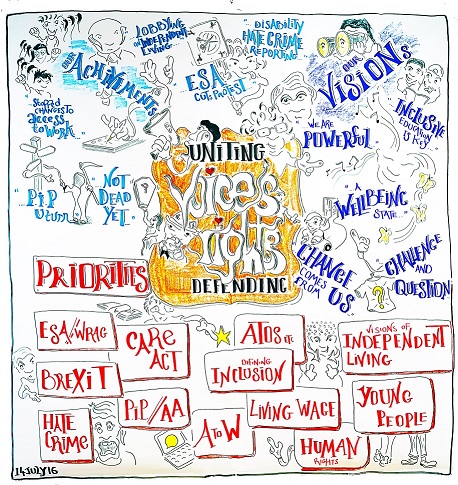 LOBBYING
ON INDEPENDENT
LIVING
"DISABILITY
HATE CRIME
REPORTING"
OUR
ACHIEVEMENTS
ESA
CUTS PROTEST
OUR
VISIONS
"STOPPED
CHANGES TO
ACCESS
TO WORK."
WE ARE
POWERFUL
INCLUSIVE
EDUCATION
IS KEY
"PIP
U turn"
"NOT
DEAD
YET"
UNITING
VOICES
RIGHTS
DEFENDING
"A
WELLBEING
STATE..."
CHANGE
COMES
FROM US
CHALLENGE
AND
QUESTION
?
PRIORITIES
ESA/WRAG
CARE
ACT
ATOS etc
VISIONS OF
INDEPENDENT
LIVING
BREXIT
DEFINING
INCLUSION
HATE
CRIME
PIP/AA
A to W
LIVING WAGE
YOUNG
PEOPLE
HUMAN
RIGHTS
14 JULY 16